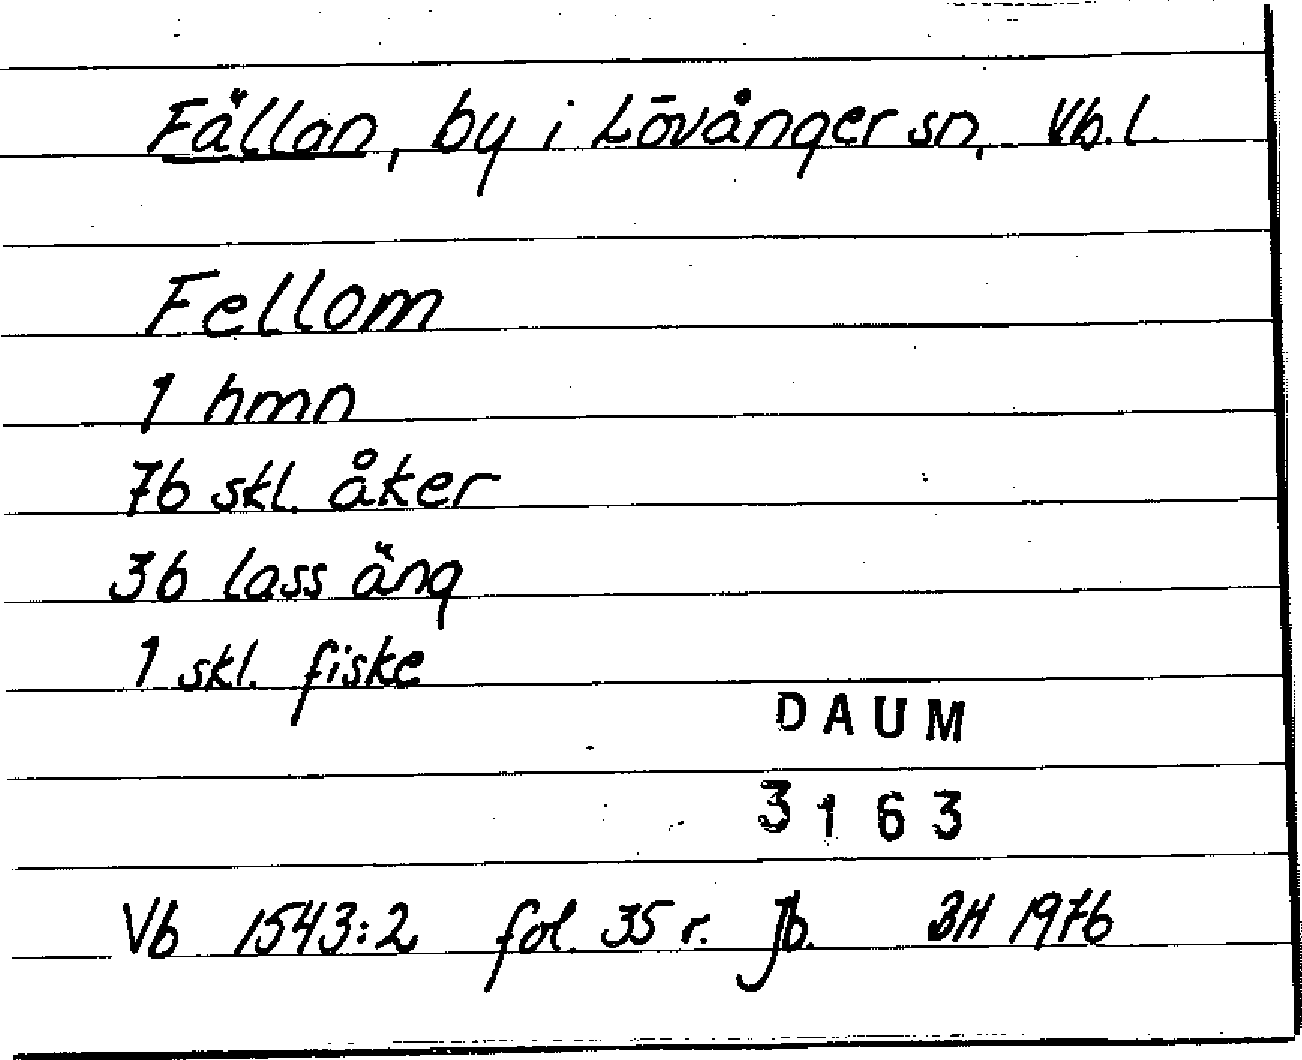 Fällan, by i Lövånger sn, Vb.l.
Fellom
1 hmn
76 skl. åker
36 lass äng
1 skl. fiske
DAUM
3163
Vb 1543:2 fol. 35 r. Jb. BH 1976